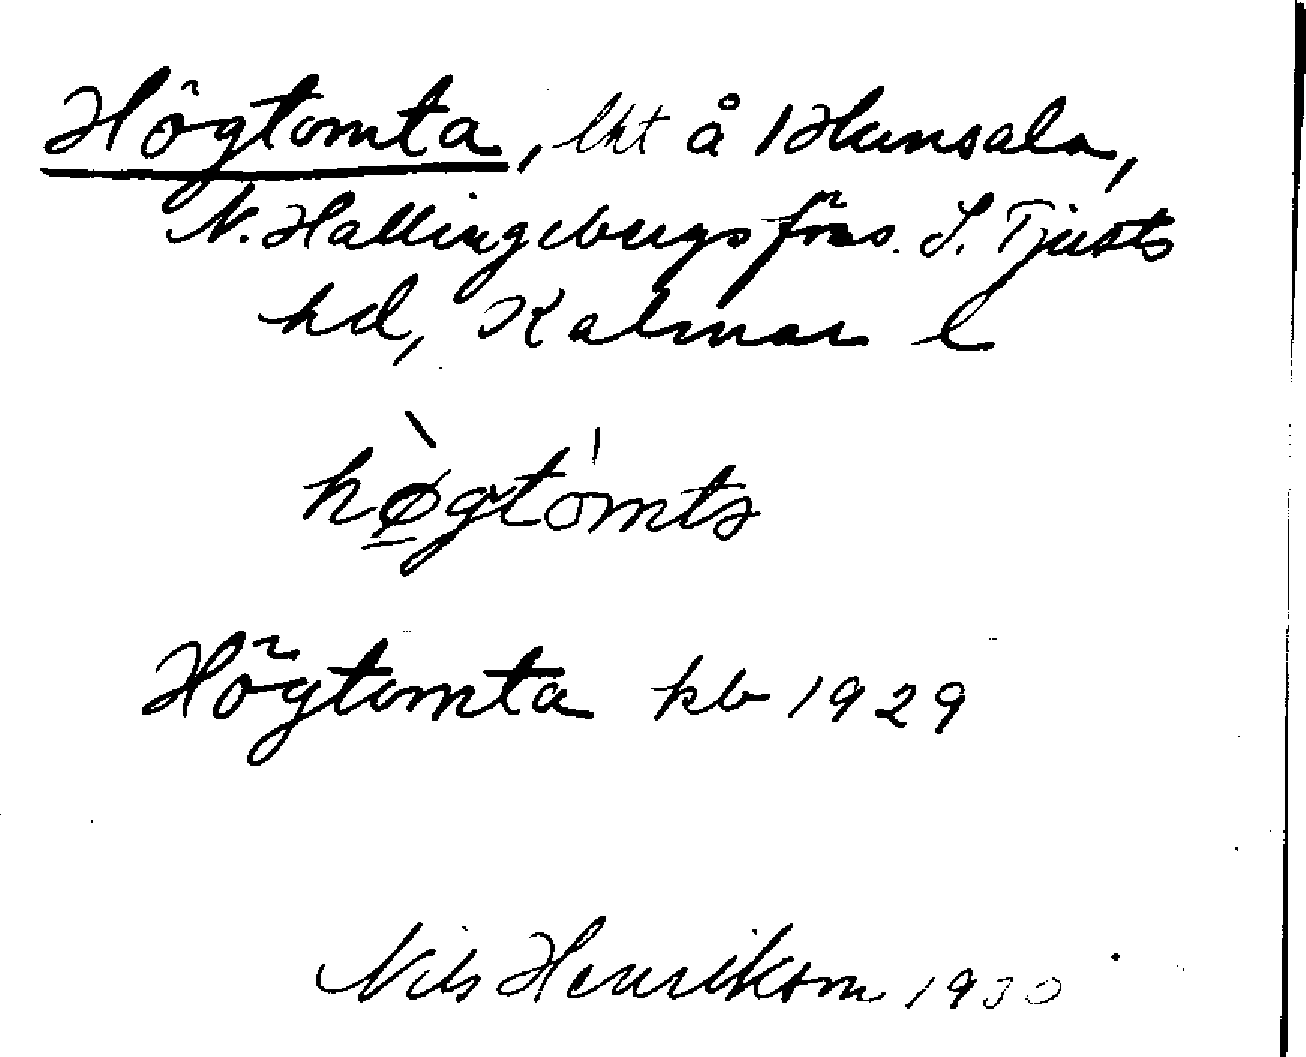 Högtomta, lht å 1 Hunsala,
N. Hallingebergs förs. S. Tjusts
hd, Kalmar l
hø̀gtómta
Högtomta kb 1929
Nils Henrikson 1930